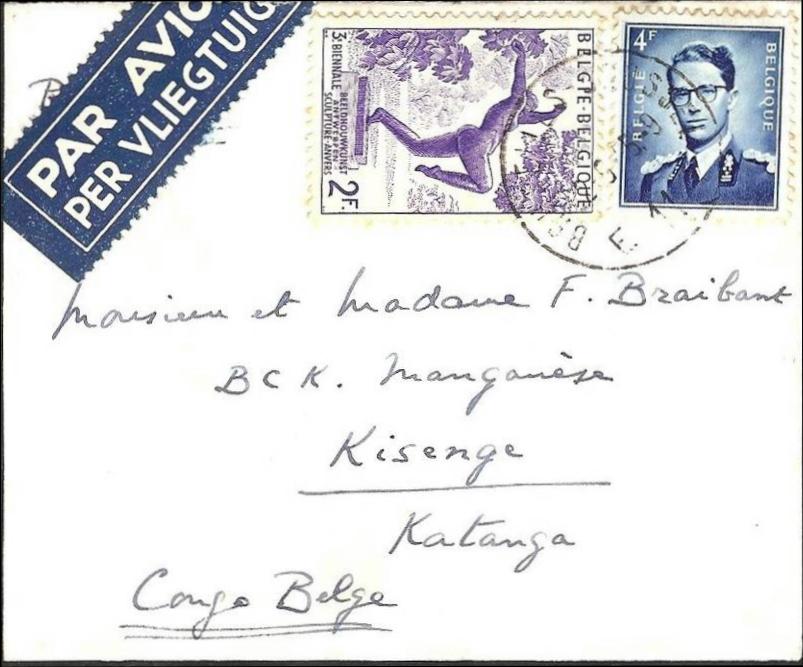 PAR AVIO
PER VLIEGTUIG
3e BIENNALE
BEELDHOUWKUNST
ANTWERPEN
SCULPTURE ANVERS
2F.
BELGIE-BELGIQUE
4F
BELGIË
BELGIQUE
Monsieur et Madame F. Braibant
BCK. Manganèse
Kisenge
Katanga
Congo Belge